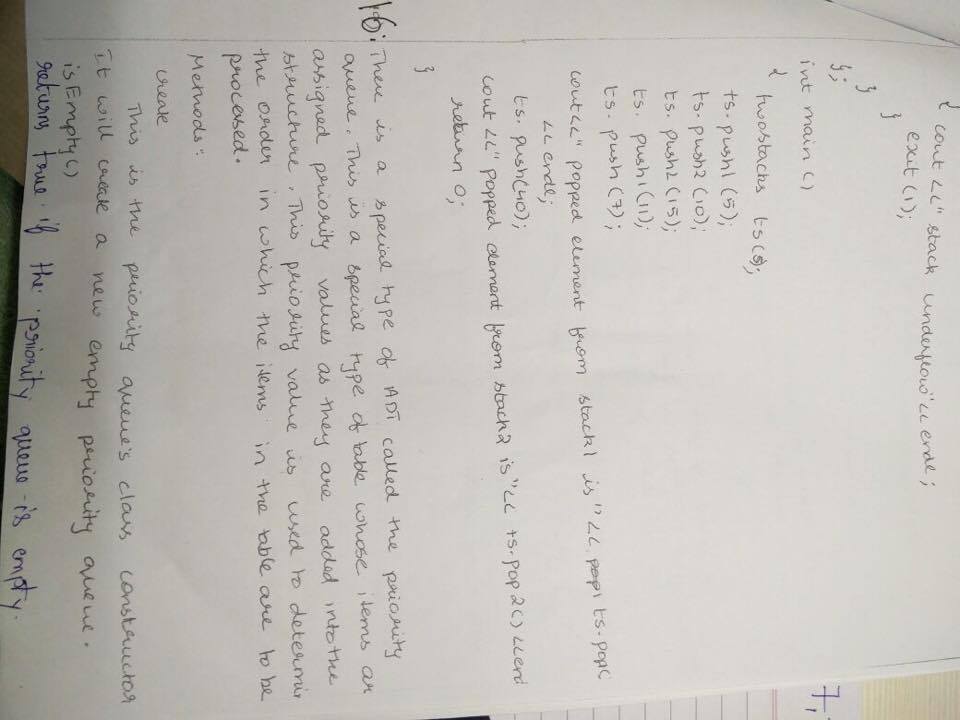 { cout <<" stack underflow"<< endl;
exit (1);
}
}
};
int main ()
{
twostacks ts(5);
ts. push1 (5);
ts. push2 (10);
ts. push2 (15);
ts. push1 (11);
ts. push (7);
cout<<" popped element from stack1 is "<< pop1 ts.pop(
<< endl;
ts. push(40);
cout <<" popped element from stack2 is "<< ts.pop 2() <<end
return 0;
}
16: There is a special type of ADT called the priority
queue. This is a special type of table whose items ar
assigned priority values as they are added into the
structure. This priority value is used to determi
the order in which the items in the table are to be
processed.
Methods:
create
This is the priority queue's class constructor
It will create a new empty priority queue.
isEmpty()
returns true if the priority queue is empty.
7,